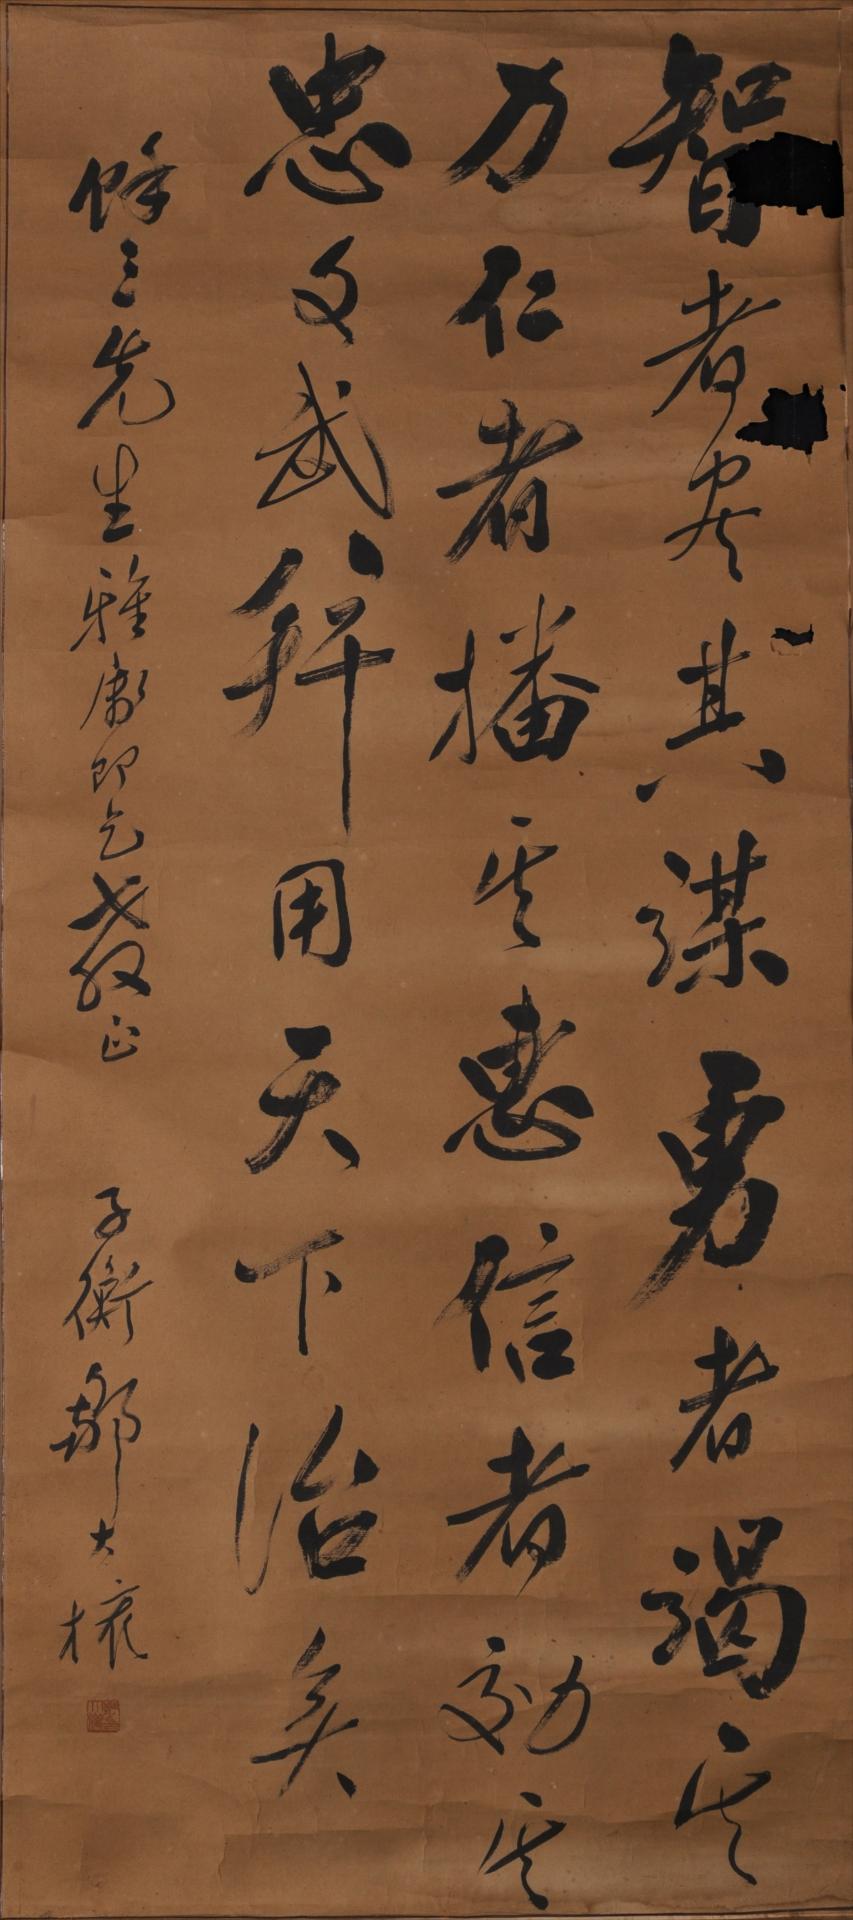 智者尽其謀勇者竭其
力仁者播其惠信者効其
忠文武並用天下治矣
餘三先生雅屬即乞教正
子衡鄒大樑